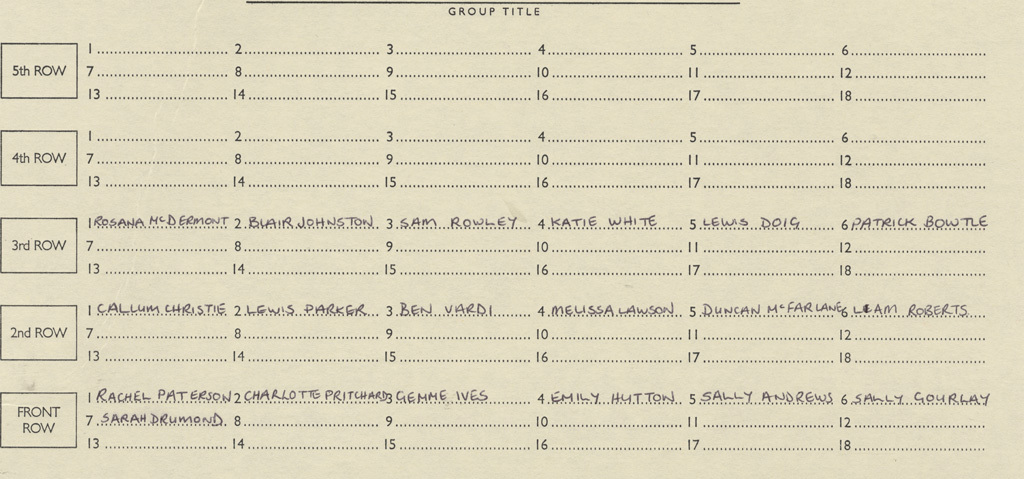 GROUP TITLE
5th ROW
1 2 3 4 5 6
7 8 9 10 11 12
13 14 15 16 17 18
4th ROW
1 2 3 4 5 6
7 8 9 10 11 12
13 14 15 16 17 18
3rd ROW
1 ROSANA McDERMONT 2 BLAIR JOHNSTON 3 SAM ROWLEY 4 KATIE WHITE 5 LEWIS DOIG 6 PATRICK BOWTLE
7 8 9 10 11 12
13 14 15 16 17 18
2nd ROW
1 CALLUM CHRISTIE 2 LEWIS PARKER 3 BEN VARDI 4 MELISSA LAWSON 5 DUNCAN McFARLANE 6 LIAM ROBERTS
7 8 9 10 11 12
13 14 15 16 17 18
FRONT ROW
1 RACHEL PATERSON 2 CHARLOTTE PRITCHARD 3 GEMME IVES 4 EMILY HUTTON 5 SALLY ANDREWS 6 SALLY GOURLAY
7 SARAH DRUMOND 8 9 10 11 12
13 14 15 16 17 18